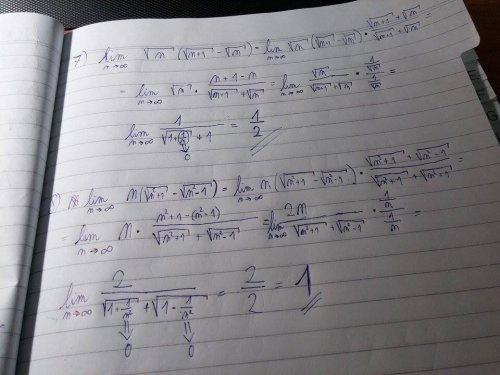 7) lim n→∞ √n (√(n+1) - √n) = lim n→∞ √n (√(n+1) - √n) · (√(n+1) + √n)/(√(n+1) + √n) =
= lim n→∞ √n · (n+1-n)/(√(n+1) + √n) = lim n→∞ √n/(√(n+1) + √n) · (1/√n)/(1/√n) =
lim n→∞ 1/(√(1+(1/n)) + 1) = 1/2
↓
0
lim n→∞ n(√(n²+1) - √(n²-1)) = lim n→∞ n(√(n²+1) - √(n²-1)) · (√(n²+1) + √(n²-1))/(√(n²+1) + √(n²-1)) =
= lim n→∞ n · (n²+1-(n²-1))/(√(n²+1) + √(n²-1)) = lim n→∞ 2n/(√(n²+1) + √(n²-1)) · (1/n)/(1/n) =
lim n→∞ 2/(√(1+1/n²) + √(1-1/n²)) = 2/2 = 1
↓ ↓
0 0